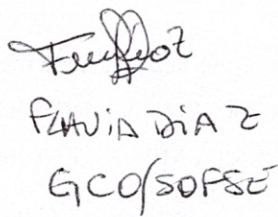 FLAVIA DIAZ
GCO/SOFSE